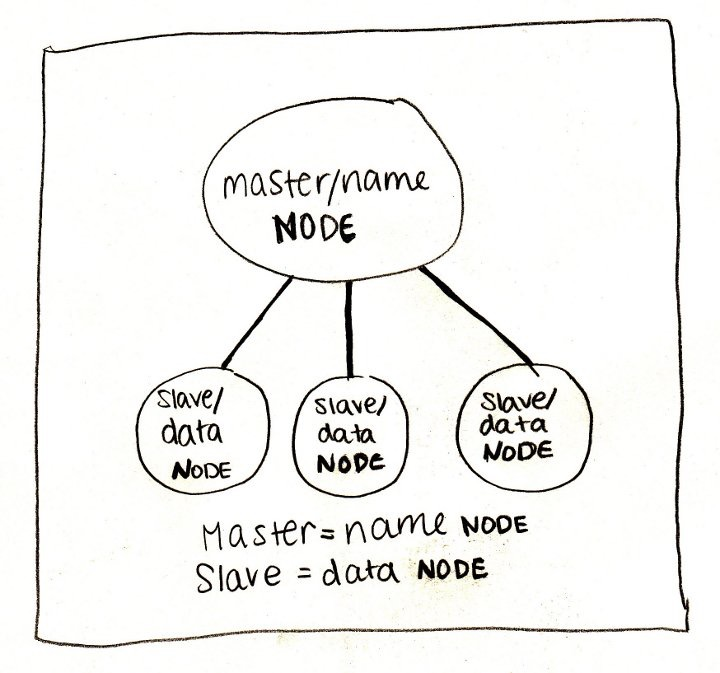 master/name
NODE
slave/
data
NODE
slave/
data
NODE
slave/
data
NODE
Master = name NODE
Slave = data NODE